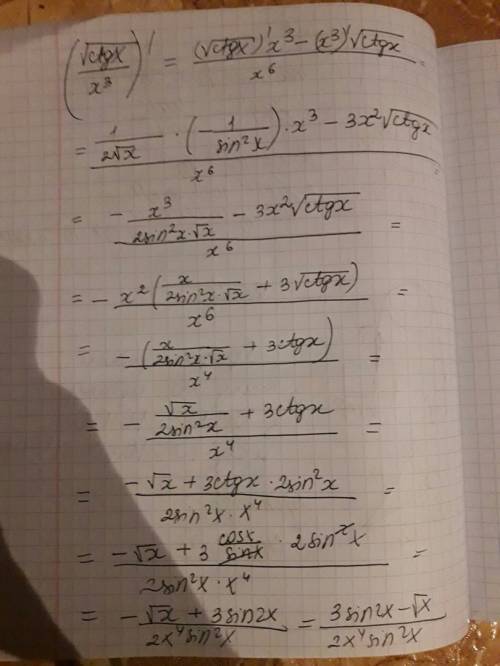 (√ctgx / x³)' = ((√ctgx)' x³ − (x³)' √ctgx) / x⁶ =
= (1/(2√x) · (−1/sin²x) · x³ − 3x²√ctgx) / x⁶ =
= (−x³/(2sin²x·√x) − 3x²√ctgx) / x⁶ =
= − x²(x/(2sin²x·√x) + 3√ctgx) / x⁶ =
= −(x/(2sin²x·√x) + 3ctgx) / x⁴ =
= − (√x/(2sin²x) + 3ctgx) / x⁴ =
= (−√x + 3ctgx · 2sin²x) / (2sin²x · x⁴) =
= (−√x + 3 cosx/sinx · 2sin²x) / (2sin²x · x⁴) =
= (−√x + 3sin2x) / (2x⁴sin²x) = (3sin2x − √x) / (2x⁴sin²x)